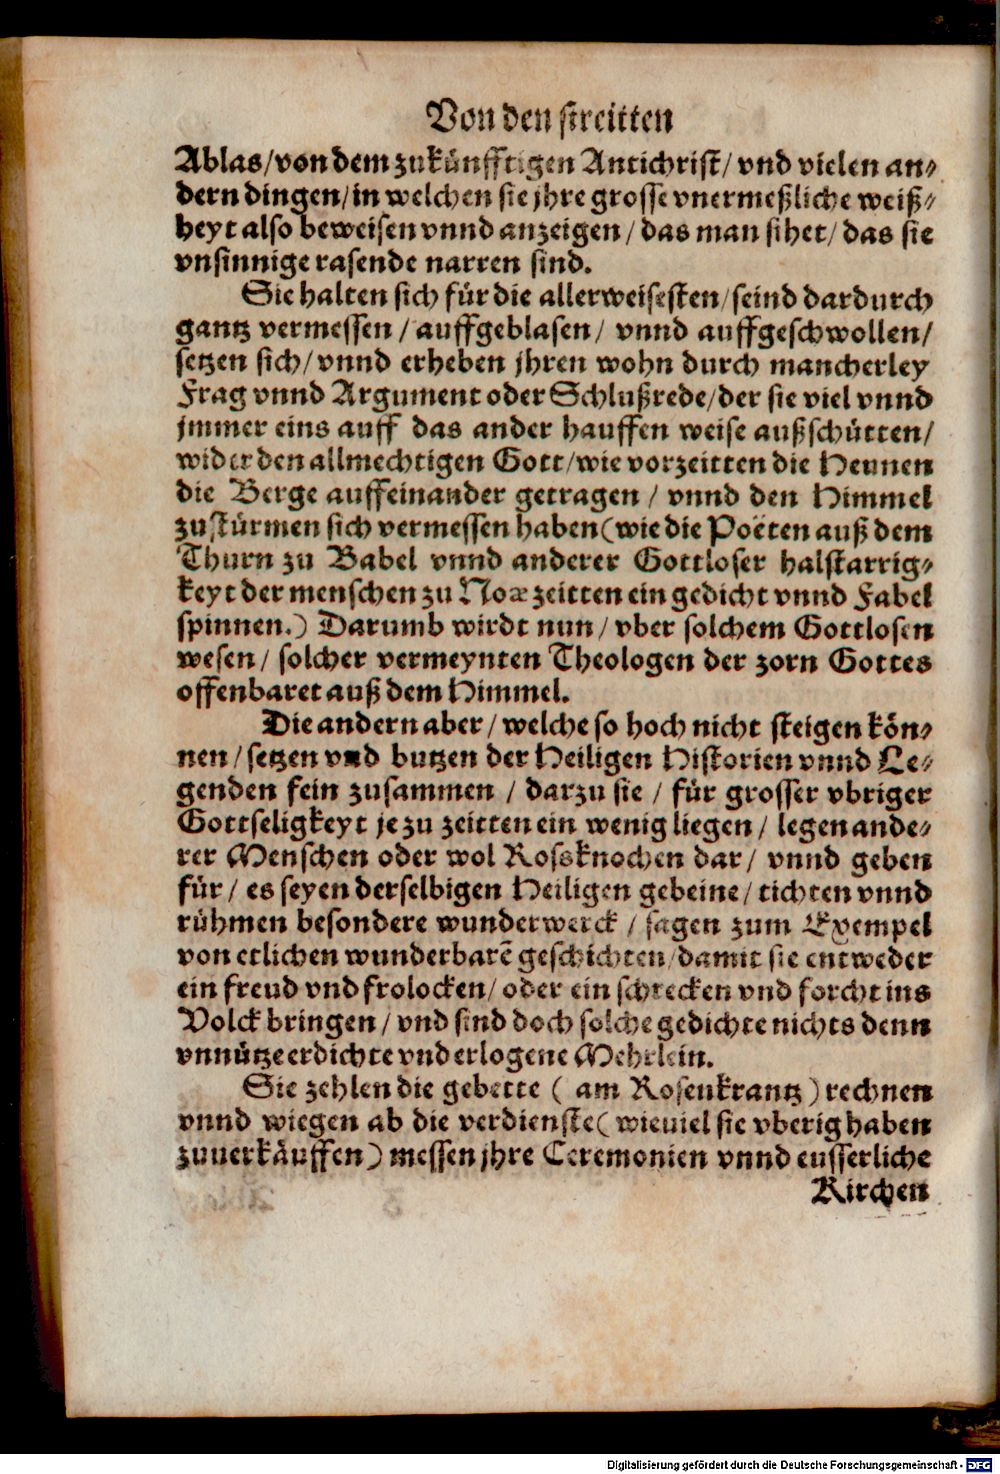 Von den streitten
Ablas/von dem zukünfftigen Antichrist/ vnd vielen an⸗
dern dingen/in welchen sie jhre grosse vnermeßliche weiß⸗
heyt also beweisen vnnd anzeigen/ das man sihet/ das sie
vnsinnige rasende narren sind.
Sie halten sich für die allerweisesten/seind dardurch
gantz vermessen/ auffgeblasen/ vnnd auffgeschwollen/
setzen sich/ vnnd erheben jhren wohn durch mancherley
Frag vnnd Argument oder Schlußrede/der sie viel vnnd
jmmer eins auff das ander hauffen weise außschütten/
wider den allmechtigen Gott/wie vorzeitten die Heunen
die Berge auffeinander getragen/ vnnd den Himmel
zustürmen sich vermessen haben(wie die Poëten auß dem
Thurn zu Babel vnnd anderer Gottloser halstarrig⸗
keyt der menschen zu Noæ zeitten ein gedicht vnnd Fabel
spinnen.) Darumb wirdt nun/ vber solchem Gottlosen
wesen/ solcher vermeynten Theologen der zorn Gottes
offenbaret auß dem Himmel.
Die andern aber/ welche so hoch nicht steigen kön⸗
nen/ setzen vnd butzen der Heiligen Historien vnnd Le⸗
genden fein zusammen/ darzu sie/ für grosser vbriger
Gottseligkeyt je zu zeitten ein wenig liegen/ legen ande⸗
rer Menschen oder wol Rossknochen dar/ vnnd geben
für/ es seyen derselbigen Heiligen gebeine/ tichten vnnd
rühmen besondere wunderwerck/ sagen zum Exempel
von etlichen wunderbarē geschichten/damit sie entweder
ein freud vnd frolocken/ oder ein schrecken vnd forcht ins
Volck bringen/ vnd sind doch solche gedichte nichts denn
vnnütze erdichte vnd erlogene Mehrlein.
Sie zehlen die gebette ( am Rosenkrantz ) rechnen
vnnd wiegen ab die verdienste( wieuiel sie vberig haben
zuuerkäuffen ) messen jhre Ceremonien vnnd eusserliche
Kirchen
Digitalisierung gefördert durch die Deutsche Forschungsgemeinschaft - DFG